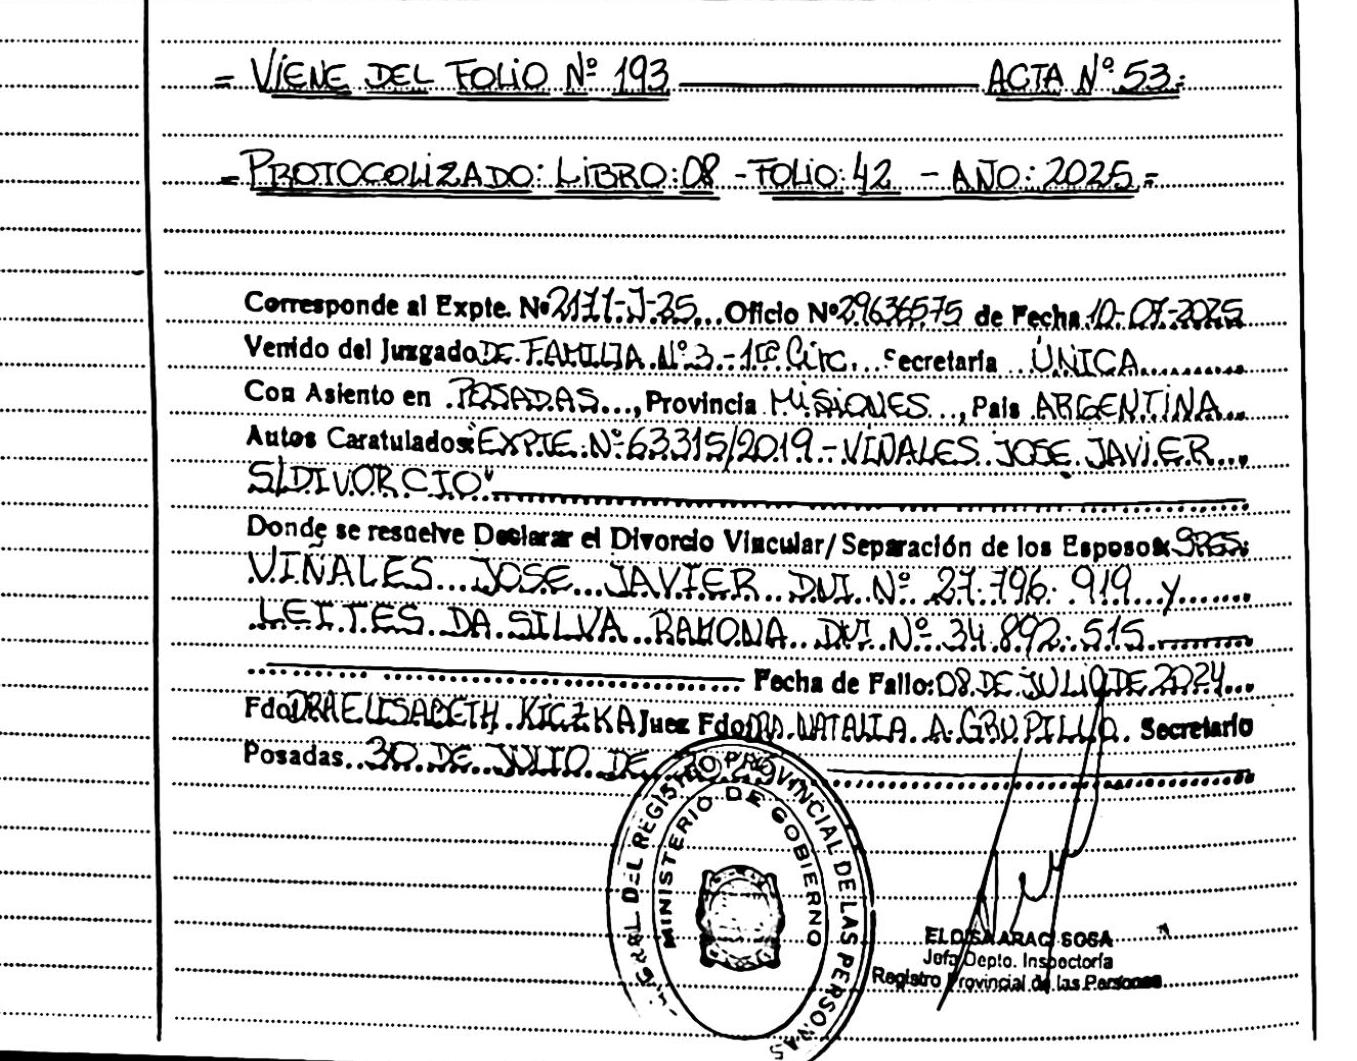 = VIENE DEL FOLIO Nº 193 ACTA Nº 53=
= PROTOCOLIZADO: LIBRO: 08 - FOLIO: 42 - AÑO: 2025 =
Corresponde al Expte. Nº 2171-J-25 Oficio Nº 29636575 de Fecha 10-07-2025
Venido del Juzgado DE FAMILIA Nº 3 - 1ra Circ. Secretaria ÚNICA
Con Asiento en POSADAS, Provincia MISIONES, Pais ARGENTINA
Autos Caratulados: "EXPTE. Nº 63315/2019 - VIÑALES JOSE JAVIER
S/DIVORCIO"
Donde se resuelve Declarar el Divorcio Vincular/Separación de los Esposos: SRES:
VIÑALES JOSE JAVIER DNI Nº 27.796.919 y
LEITES DA SILVA RAMONA DNI Nº 34.892.515
Fecha de Fallo: 08 DE JULIO DE 2024
Fdo DRA ELISABETH KICZKA Juez Fdo DRA. NATALIA A. GRUPILLO Secretario
Posadas 30 DE JULIO DE
DEL REGISTRO PROVINCIAL DE LAS PERSONAS
MINISTERIO DE GOBIERNO
ELOISA ARACI SOSA
Jefa Depto. Inspectoría
Registro Provincial de las Personas